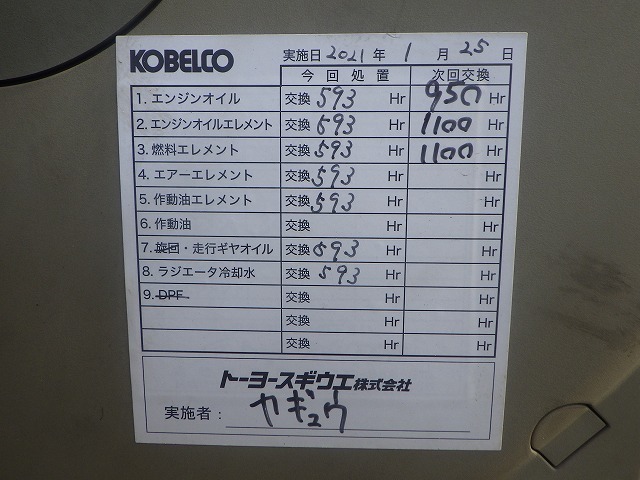 KOBELCO 実施日 2021 年 1 月 25 日
今回処置 次回交換
1. エンジンオイル 交換 593 Hr 950 Hr
2. エンジンオイルエレメント 交換 593 Hr 1100 Hr
3. 燃料エレメント 交換 593 Hr 1100 Hr
4. エアーエレメント 交換 593 Hr Hr
5. 作動油エレメント 交換 593 Hr Hr
6. 作動油 交換 Hr Hr
7. 旋回・走行ギヤオイル 交換 593 Hr Hr
8. ラジエータ冷却水 交換 593 Hr Hr
9. DPF 交換 Hr Hr
交換 Hr Hr
交換 Hr Hr
トーヨースギウエ株式会社
実施者: カギュウ